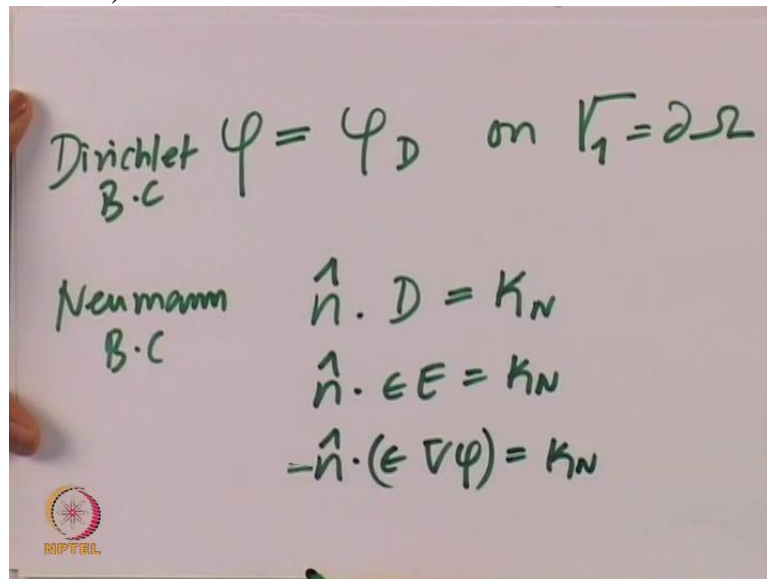 Dirichlet φ = φ_D on Γ_1 = ∂Ω
B.C
Neumann n̂ . D = K_N
B.C
n̂ . ϵE = K_N
-n̂ . (ϵ ∇φ) = K_N
NPTEL